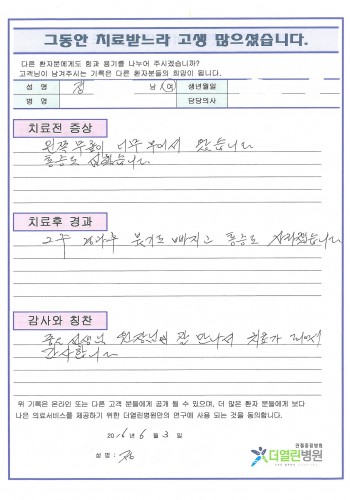 그동안 치료받느라 고생 많으셨습니다.
다른 환자분에게도 힘과 용기를 나누어 주시겠습니까?
고객님이 남겨주시는 기록은 다른 환자분들의 희망이 됩니다.
성 명 정 남 여 생년월일
병 명 담당의사
치료전 증상
왼쪽 무릎이 너무 부어서 왔습니다
통증도 심했습니다
치료후 경과
그후 붓기도 빠지고 통증도 사라졌습니다
감사와 칭찬
선생님 원장님 잘 만나서 치료가 되어서
감사합니다
위 기록은 온라인 또는 다른 고객 분들에게 공개 될 수 있으며, 더 많은 환자 분들에게 보다
나은 의료서비스를 제공하기 위한 더열린병원만의 연구에 사용 되는 것을 동의합니다.
2016년 6 월 3 일
성 명 : 정
관절중점병원
더열린병원